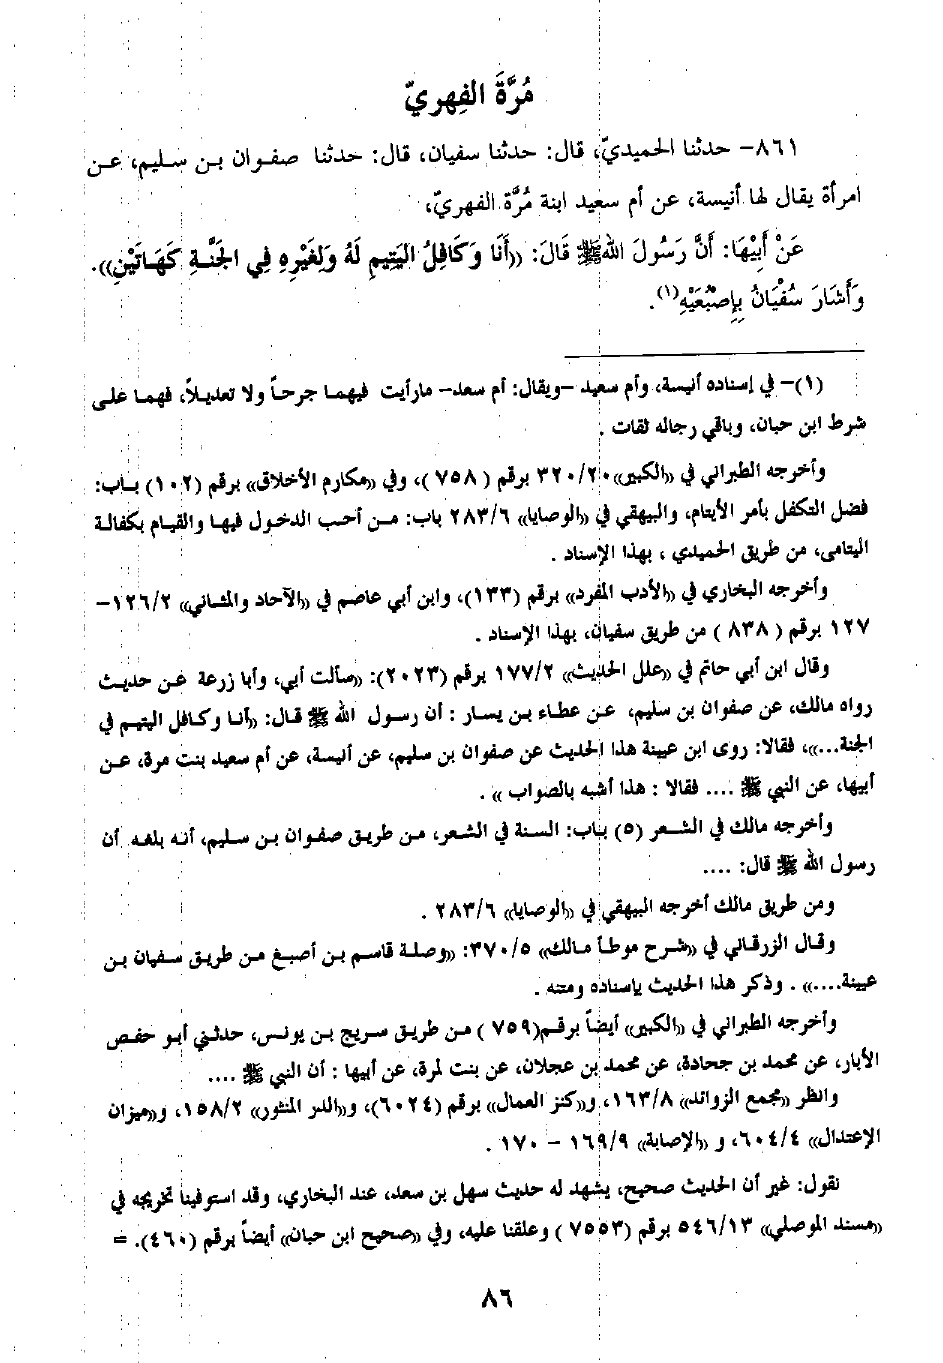 مُرَّةَ الفِهريّ
٨٦١- حدثنا الحميديّ، قال: حدثنا سفيان، قال: حدثنا صفوان بن سليم، عن
امرأة يقال لها أنيسة، عن أم سعيد ابنة مُرَّة الفهريّ،
عَنْ أَبِيْهَا: أَنَّ رَسُولَ اللهِ ﷺ قَالَ: «أَنَا وَكَافِلُ اليَتِيمِ لَهُ وَلِغَيْرِهِ فِي الجَنَّةِ كَهَاتَيْنِ».
وَأَشَارَ سُفْيَانُ بِإِصْبُعَيْهِ(١).
(١)- في إسناده أنيسة، وأم سعيد -ويقال: أم سعد- مارأيت فيهما جرحاً ولا تعديلاً، فهما على
شرط ابن حبان، وباقي رجاله ثقات .
وأخرجه الطبراني في «الكبير» ٣٢٠/٢٠ برقم ( ٧٥٨ )، وفي «مكارم الأخلاق» برقم (١٠٢) باب:
فضل التكفل بأمر الأيتام، والبيهقي في «الوصايا» ٢٨٣/٦ باب: من أحب الدخول فيها والقيام بكفالة
اليتامى، من طريق الحميدي ، بهذا الإسناد .
وأخرجه البخاري في «الأدب المفرد» برقم (١٣٣)، وابن أبي عاصم في «الآحاد والمثاني» ١٢٦/٢-
١٢٧ برقم ( ٨٣٨ ) من طريق سفيان، بهذا الإسناد .
وقال ابن أبي حاتم في «علل الحديث» ١٧٧/٢ برقم (٢٠٢٣): «سألت أبي، وأبا زرعة عن حديث
رواه مالك، عن صفوان بن سليم، عن عطاء بن يسار : أن رسول الله ﷺ قال: «أنا وكافل اليتيم في
الجنة...»، فقالا: روى ابن عيينة هذا الحديث عن صفوان بن سليم، عن أنيسة، عن أم سعيد بنت مرة، عن
أبيها، عن النبي ﷺ .... فقالا : هذا أشبه بالصواب » .
وأخرجه مالك في الشعر (٥) باب: السنة في الشعر، من طريق صفوان بن سليم، أنه بلغه أن
رسول الله ﷺ قال: ....
ومن طريق مالك أخرجه البيهقي في «الوصايا» ٢٨٣/٦ .
وقال الزرقاني في «شرح موطأ مالك» ٣٧٠/٥: «وصلة قاسم بن أصبغ من طريق سفيان بن
عيينة....» . وذكر هذا الحديث بإسناده ومتنه .
وأخرجه الطبراني في «الكبير» أيضاً برقم(٧٥٩ ) من طريق سريج بن يونس، حدثني أبو حفص
الأبار، عن محمد بن جحادة، عن محمد بن عجلان، عن بنت لمرة، عن أبيها : أن النبي ﷺ ....
وانظر «مجمع الزوائد» ١٦٣/٨، و«كنز العمال» برقم (٦٠٢٤)، و«الدر المنثور» ١٥٨/٢، و«ميزان
الإعتدال» ٦٠٤/٤، و «الإصابة» ١٦٩/٩ - ١٧٠ .
نقول: غير أن الحديث صحيح، يشهد له حديث سهل بن سعد، عند البخاري، وقد استوفينا تخريجه في
«مسند الموصلي» ٥٤٦/١٣ برقم (٧٥٥٣ ) وعلقنا عليه، وفي «صحيح ابن حبان» أيضاً برقم (٤٦٠). =
٨٦